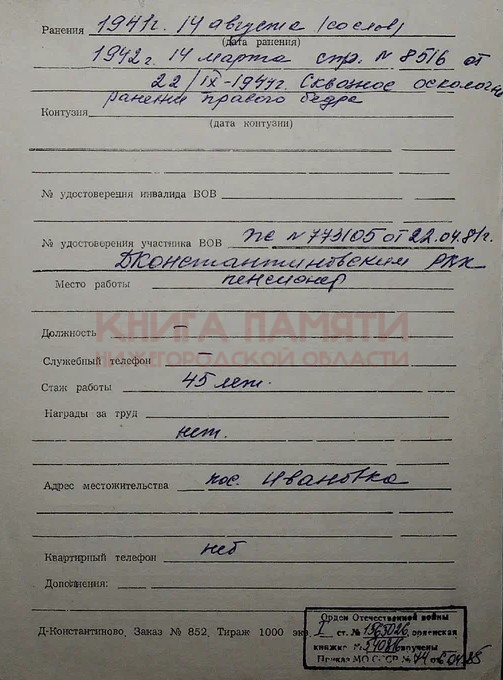 Ранения 1941г. 14 августа (со слов)
(дата ранения)
1942г. 14 марта стр. N 8516 от
22/IX-1947г. Сквозное осколочн
ранение правого бедра
Контузия
(дата контузии)
№ удостоверения инвалида ВОВ
№ удостоверения участника ВОВ N 773105 от 22.04.81г.
ДКонстантиновским РВК
Место работы пенсионер
КНИГА ПАМЯТИ
Должность —
НИЖЕГОРОДСКОЙ ОБЛАСТИ
Служебный телефон —
Стаж работы 45 лет.
Награды за труд
нет.
Адрес местожительства пос. Ивановка
Квартирный телефон нет
Дополнения:
Д-Константиново, Заказ № 852, Тираж 1000 экз.
Орден Отечественной войны
I ст. № 1565026, орденская
книжка № 540816 вручены
Приказ МО СССР №